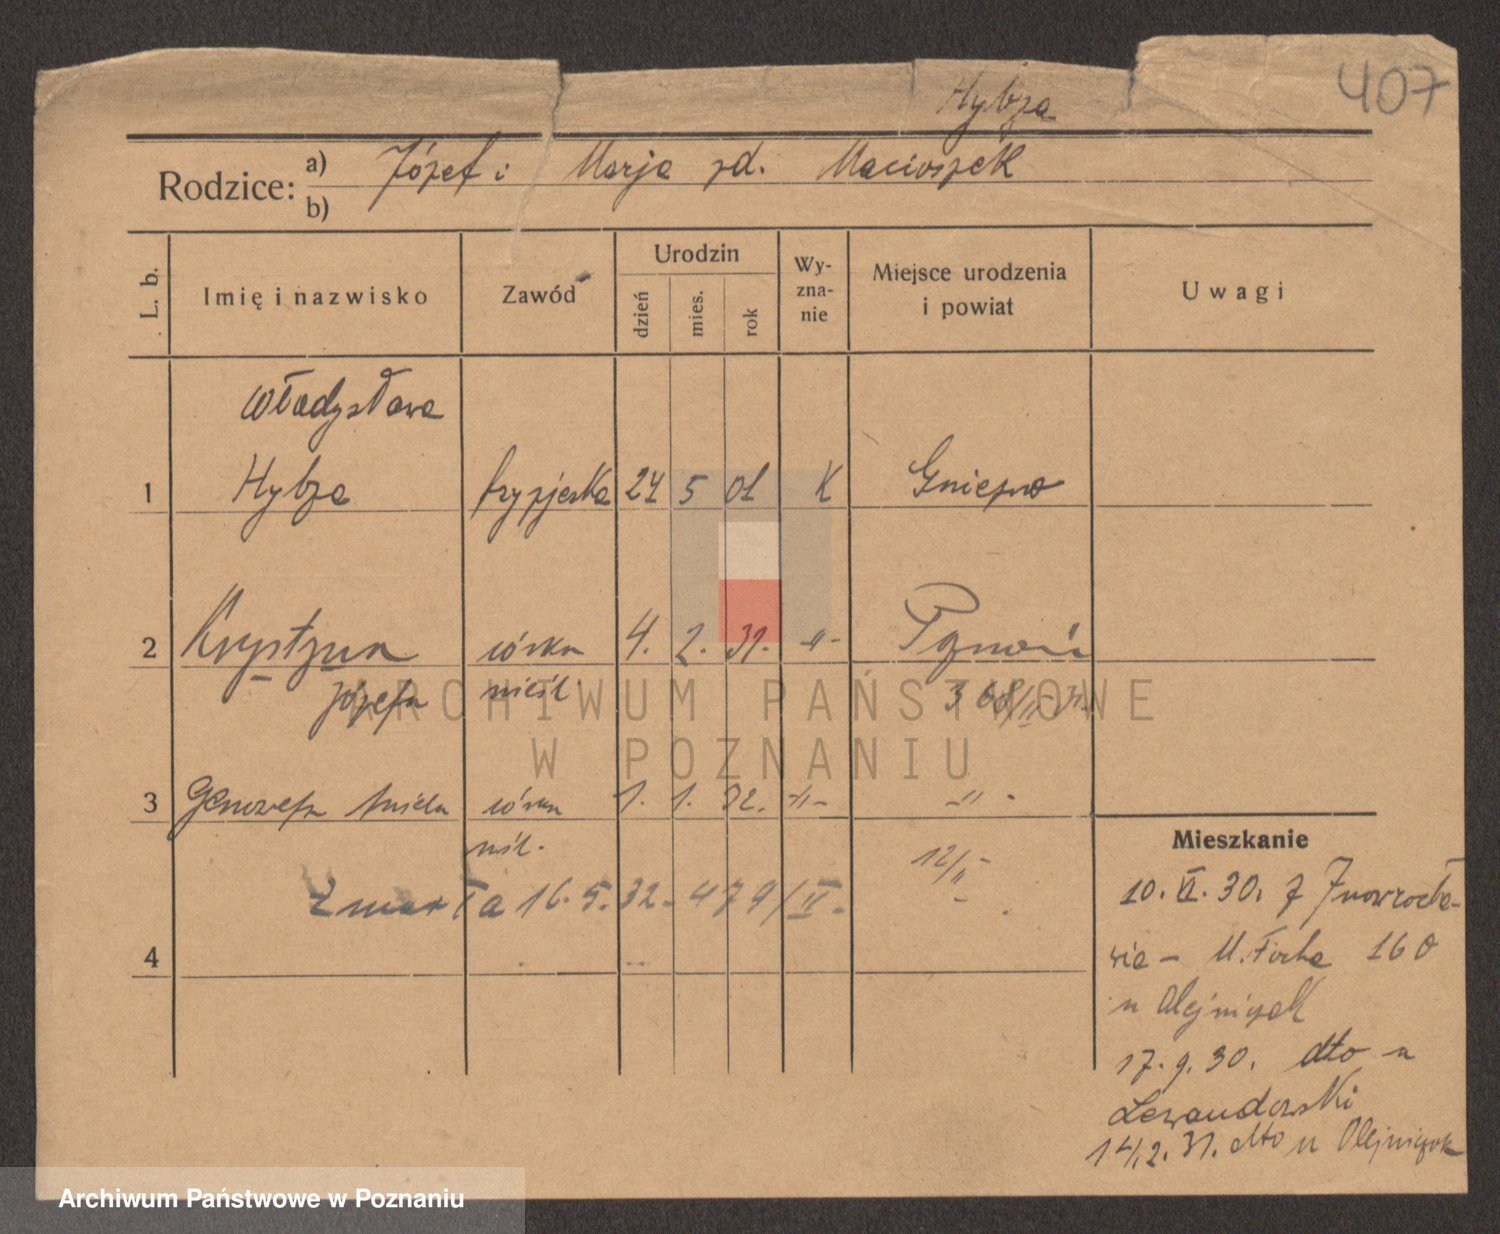 407
Hybza
Rodzice: a) Józef i Marja zd. Macioszek
b)
L. b. Imię i nazwisko Zawód Urodzin dzień mies. rok Wy-zna-nie Miejsce urodzenia i powiat Uwagi
Władysława
1 Hybza fryzjerka 24 5 01 K Gniezno
2 Krystyna córka 4. 2. 31. -"- Poznań
Józefa nieśl. 368/II
3 Genowefa córka 1. 1. 32. -"- -"-
nśl. 12/II
Zmarła 16. 5. 32. 479/II.
4
Mieszkanie
10. VI. 30. z Inowrocła-
wia - M. Focha 160
u Olejniczak
17. 9. 30. dto u
Lewandowski
14/2. 31. dto u Olejniczak
ARCHIWUM PAŃSTWOWE
W POZNANIU
Archiwum Państwowe w Poznaniu